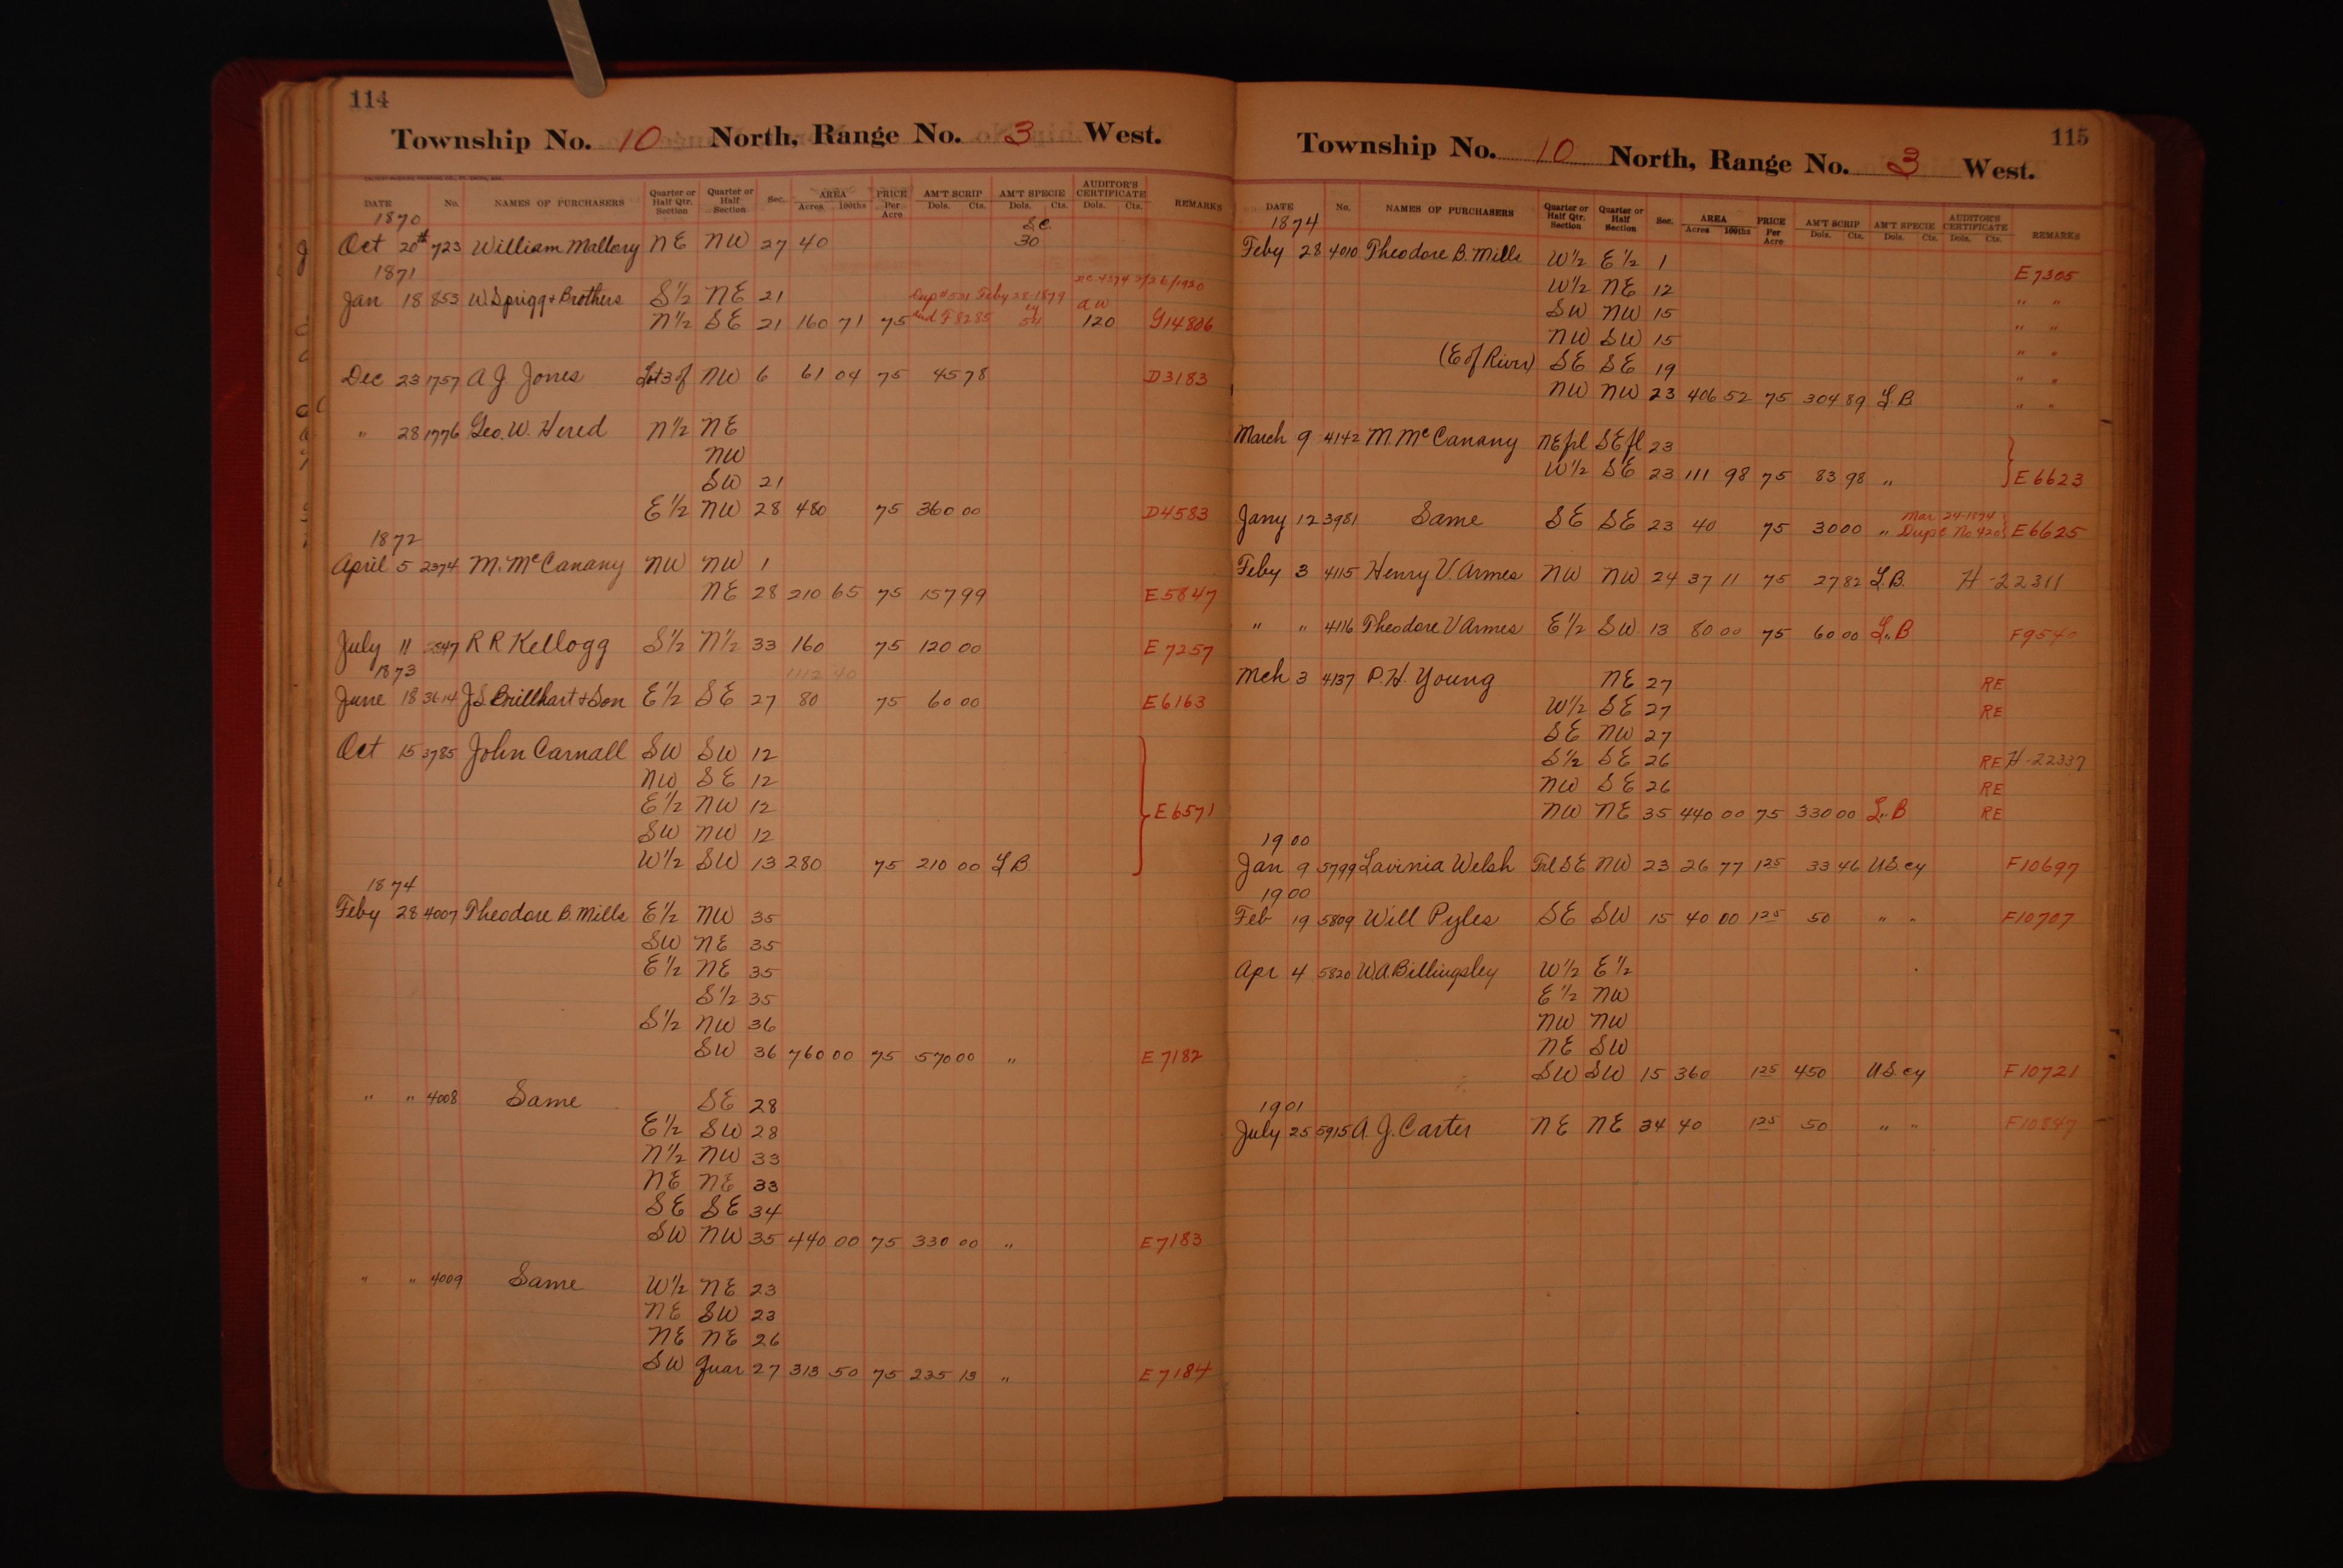 114
Township No. 10 North, Range No. 3 West.
DATE No. NAMES OF PURCHASERS Quarter or Half Qtr. Section Quarter or Half Section Sec. AREA Acres 100ths PRICE Per Acre AM'T SCRIP Dols. Cts. AM'T SPECIE Dols. Cts. AUDITOR'S CERTIFICATE Dols. Cts. REMARKS
1870
Oct 20th 723 William Mallory NE NW 27 40 Sc. 30
1871
Jan 18 853 W. Sprigg & Brothers S½ NE 21 Dup # 531 Feby 28-1879 aw
N½ SE 21 160 71 75 120 G14806
Dec 23 1757 A J. Jones Lot 3 of NW 6 61 04 75 45 78 D3183
" 28 1776 Geo. W. Hered N½ NE
NW
SW 21
E½ NW 28 480 75 360 00 D4583
1872
April 5 2374 M. McCanany NW NW 1
NE 28 210 65 75 157 99 E5847
July 11 2847 R R Kellogg S½ N½ 33 160 75 120 00 E7257
1112 40
1873
June 18 3614 J.S. Brillhart & Son E½ SE 27 80 75 60 00 E6163
Oct 15 3785 John Carnall SW SW 12
NW SE 12
E½ NW 12 E6571
SW NW 12
W½ SW 13 280 75 210 00 L.B.
1874
Feby 28 4007 Theodore B. Mills E½ NW 35
SW NE 35
E½ NE 35
S½ 35
S½ NW 36
SW 36 760 00 75 570 00 " E7182
" " 4008 Same SE 28
E½ SW 28
N½ NW 33
NE NE 33
SE SE 34
SW NW 35 440 00 75 330 00 " E7183
" " 4009 Same W½ NE 23
NE SW 23
NE NE 26
SW Quar 27 313 50 75 235 13 " E7184
115
Township No. 10 North, Range No. 3 West.
DATE No. NAMES OF PURCHASERS Quarter or Half Qtr. Section Quarter or Half Section Sec. AREA Acres 100ths PRICE Per Acre AM'T SCRIP Dols. Cts. AM'T SPECIE Dols. Cts. AUDITOR'S CERTIFICATE Dols. Cts. REMARKS
1874
Feby 28 4010 Theodore B. Mills W½ E½ 1 E7305
W½ NE 12 " "
SW NW 15 " "
NW SW 15 " "
(E of River) SE SE 19 " "
NW NW 23 406 52 75 304 89 L.B. " "
March 9 4142 M. McCanany NE frl SE fl 23
W½ SE 23 111 98 75 83 98 " E6623
Jany 12 3981 Same SE SE 23 40 75 30 00 " Mar 24-1874 Dupe No 4203 E6625
Feby 3 4115 Henry V. Armes NW NW 24 37 11 75 27 82 L.B. H-22311
" " 4116 Theodore V Armes E½ SW 13 80 00 75 60 00 L.B F9540
Mch 3 4137 P. H. Young NE 27 RE
W½ SE 27 RE
SE NW 27
S½ SE 26 RE H-22337
NW SE 26 RE
NW NE 35 440 00 75 330 00 L.B RE
1900
Jan 9 5799 Lavinia Welsh Frl SE NW 23 26 77 1 25 33 46 U.S. cy F10697
1900
Feb 19 5809 Will Pyles SE SW 15 40 00 1 25 50 " " F10707
Apr 4 5820 W. A. Billingsley W½ E½
E½ NW
NW NW
NE SW
SW SW 15 360 1 25 450 U.S. cy F10721
1901
July 25 5915 A. J. Carter NE NE 34 40 1 25 50 " " F10847